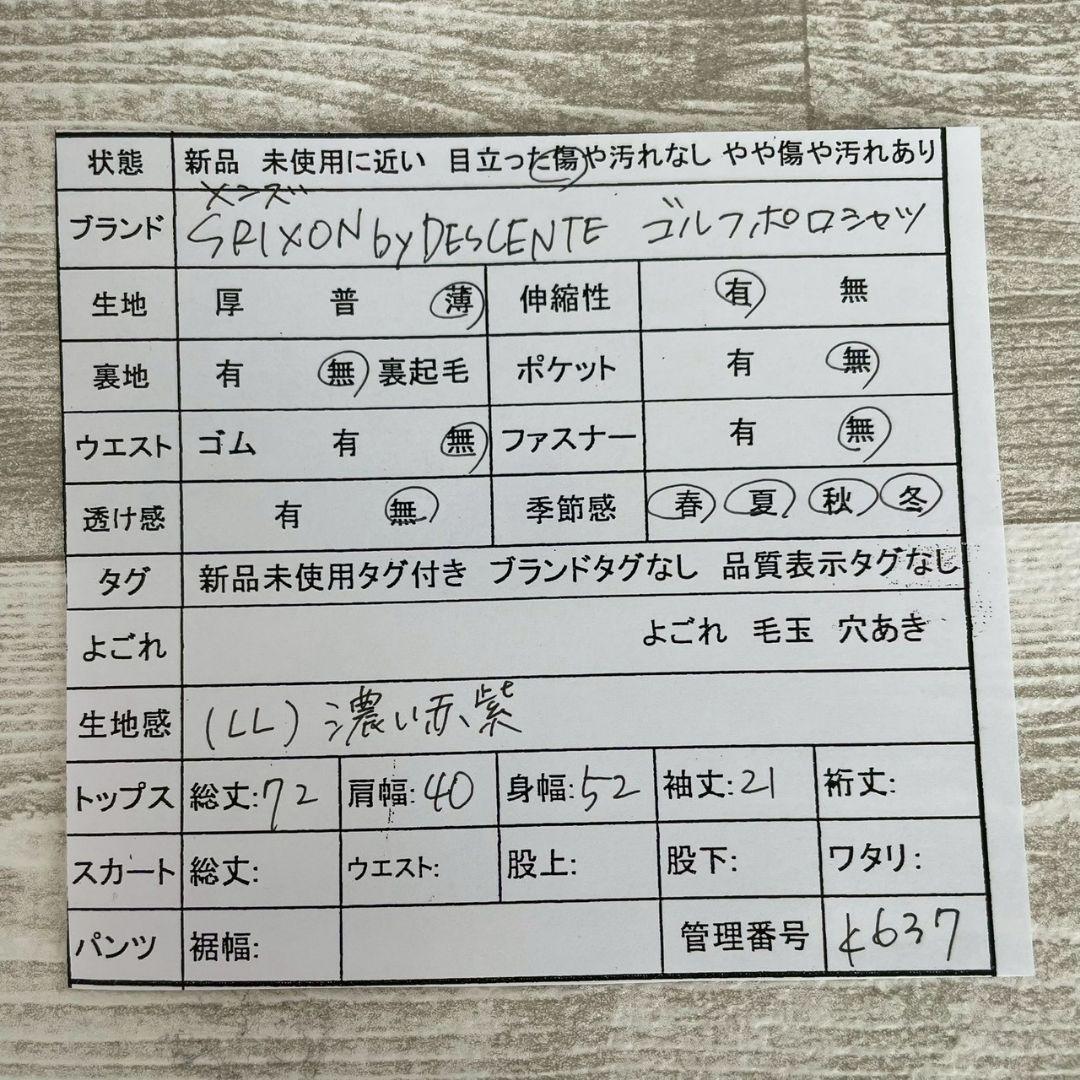 状態 新品 未使用に近い 目立った傷や汚れなし やや傷や汚れあり
メンズ
ブランド SRIXON by DESCENTE ゴルフポロシャツ
生地 厚 普 薄 伸縮性 有 無
裏地 有 無 裏起毛 ポケット 有 無
ウエスト ゴム 有 無 ファスナー 有 無
透け感 有 無 季節感 春 夏 秋 冬
タグ 新品未使用タグ付き ブランドタグなし 品質表示タグなし
よごれ よごれ 毛玉 穴あき
生地感 (LL) 濃い赤紫
トップス 総丈:72 肩幅:40 身幅:52 袖丈:21 裄丈:
スカート 総丈: ウエスト: 股上: 股下: ワタリ:
パンツ 裾幅: 管理番号 k637